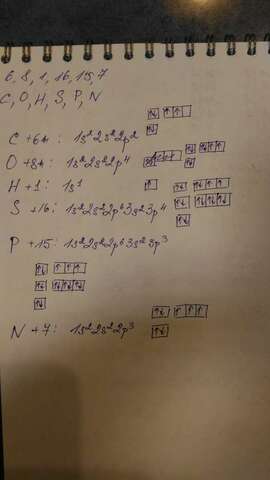 6, 8, 1, 16, 15, 7
C, O, H, S, P, N
C +6: 1s²2s²2p²
O +8: 1s²2s²2p⁴
H +1: 1s¹
S +16: 1s²2s²2p⁶3s²3p⁴
P +15: 1s²2s²2p⁶3s²3p³
N +7: 1s²2s²2p³